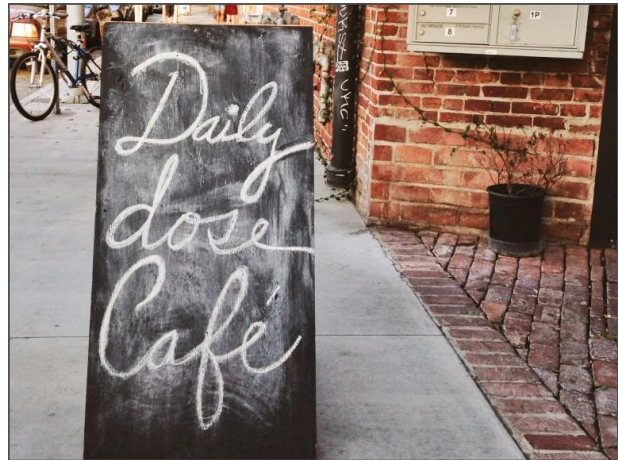 Daily
dose
Café
7
8
1P